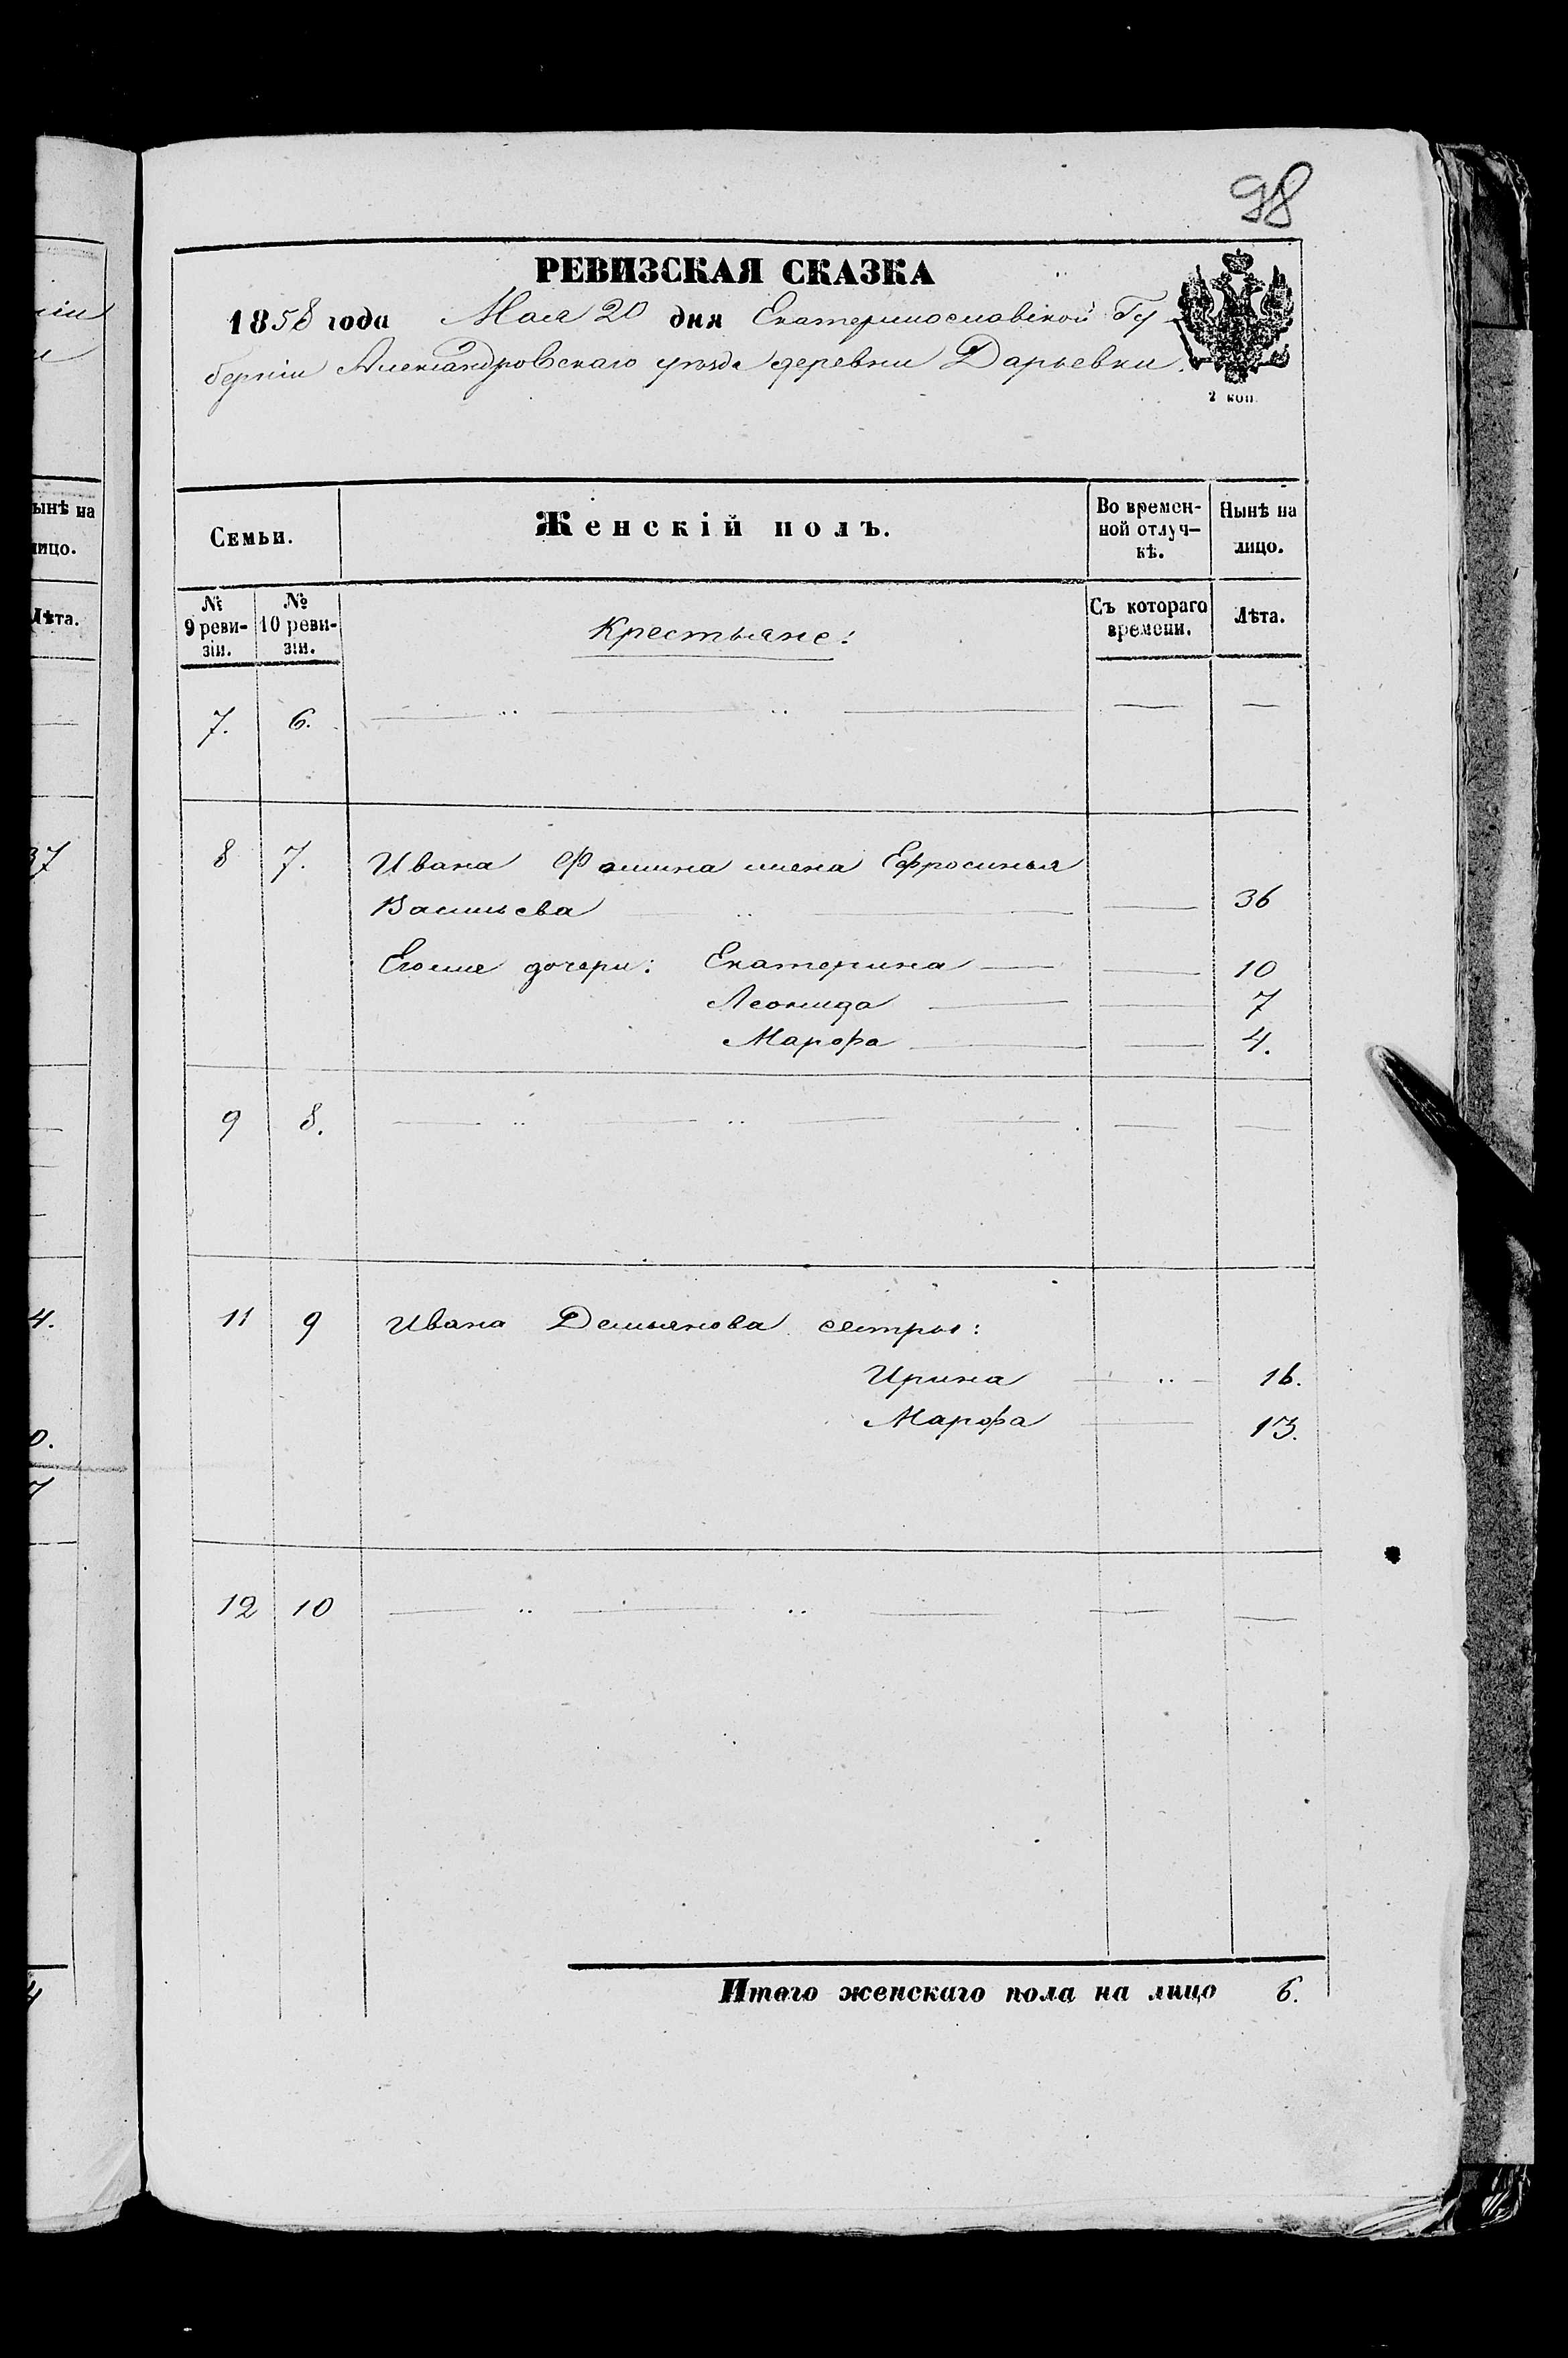 98
РЕВИЗСКАЯ СКАЗКА
1858 года Мая 20 дня Екатеринославской Гу-
берніи Александровскаго уѣзда деревни Дарьевки.
2 коп.
Семьи. Женскій полъ. Во времен-ной отлуч-кѣ. Нынѣ на лицо.
№ 9 реви-зіи. № 10 реви-зіи. Крестьяне: Съ котораго времени. Лѣта.
7. 6.
8 7. Ивана Фомина жена Ефросинья
Васильева 36
Егоже дочери: Екатерина 10
Леонида 7
Марфа 4.
9 8.
11 9 Ивана Демьянова сестры:
Ирина 16.
Марфа 13.
12 10
Итого женскаго пола на лицо 6.
ынѣ на
лицо.
Лѣта.
37
4.
0.
7
4